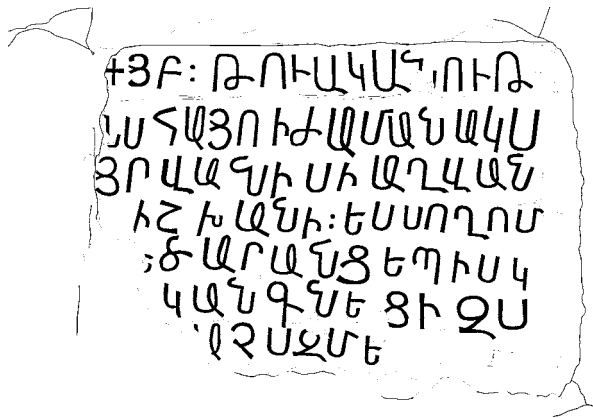 +ՅԲ: ԹՈՒԱԿԱՆՈՒԹ
ՆՍ ՀԱՅՈՒ ԻԺԱՄԱՆԱԿՍ
ՅՐՎԱՆԻՍԻ ԱՂՎԱՆ
ԻՇԽԱՆԻ: ԵՍ ՍՈՂՈՄ
ՃԱՐԱՆՑ ԵՊԻՍԿ
ԿԱՆԳՆԵՑԻ ԶՍ
ԱՉՍ ՋՄԵ